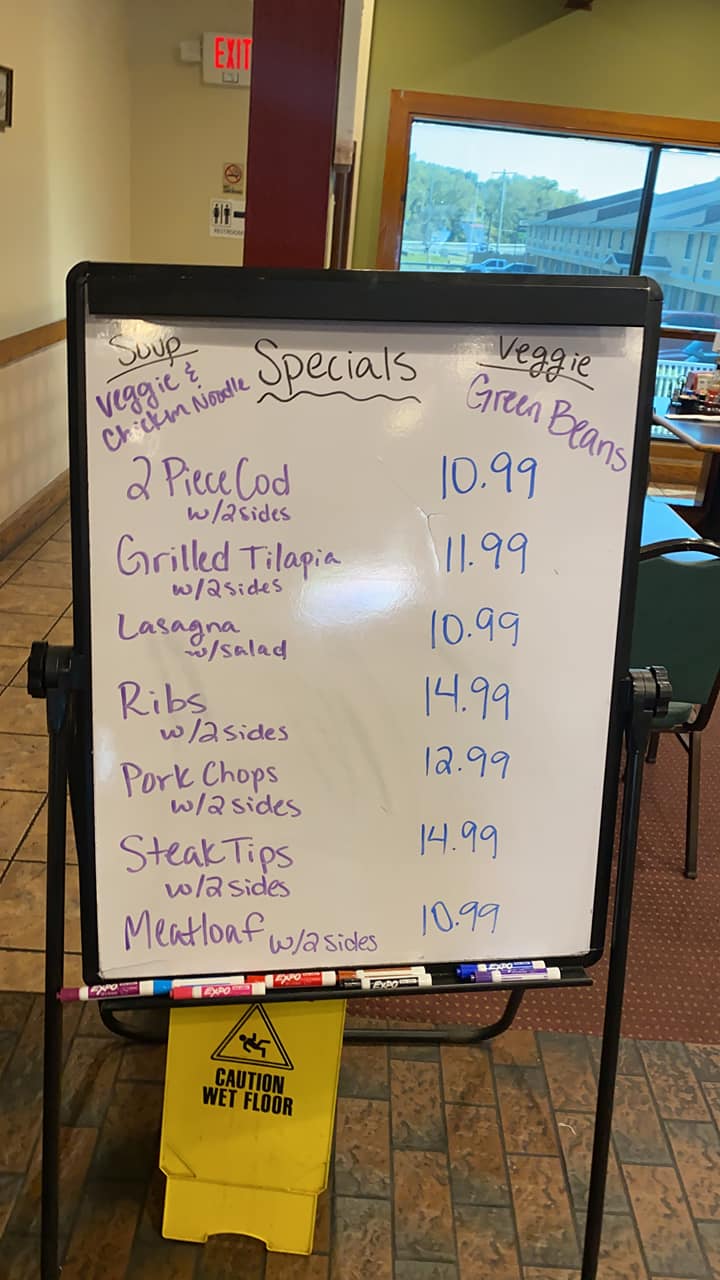 EXIT
RESTROOMS
Soup
Specials
Veggie
Veggie &
Chicken Noodle
Green Beans
2 Piece Cod 10.99
w/2sides
Grilled Tilapia 11.99
w/2sides
Lasagna 10.99
w/salad
Ribs 14.99
w/2sides
Pork Chops 12.99
w/2sides
Steak Tips 14.99
w/2sides
Meatloaf w/2sides 10.99
EXPO
EXPO
EXPO
EXPO
EXPO
EXPO
CAUTION
WET FLOOR